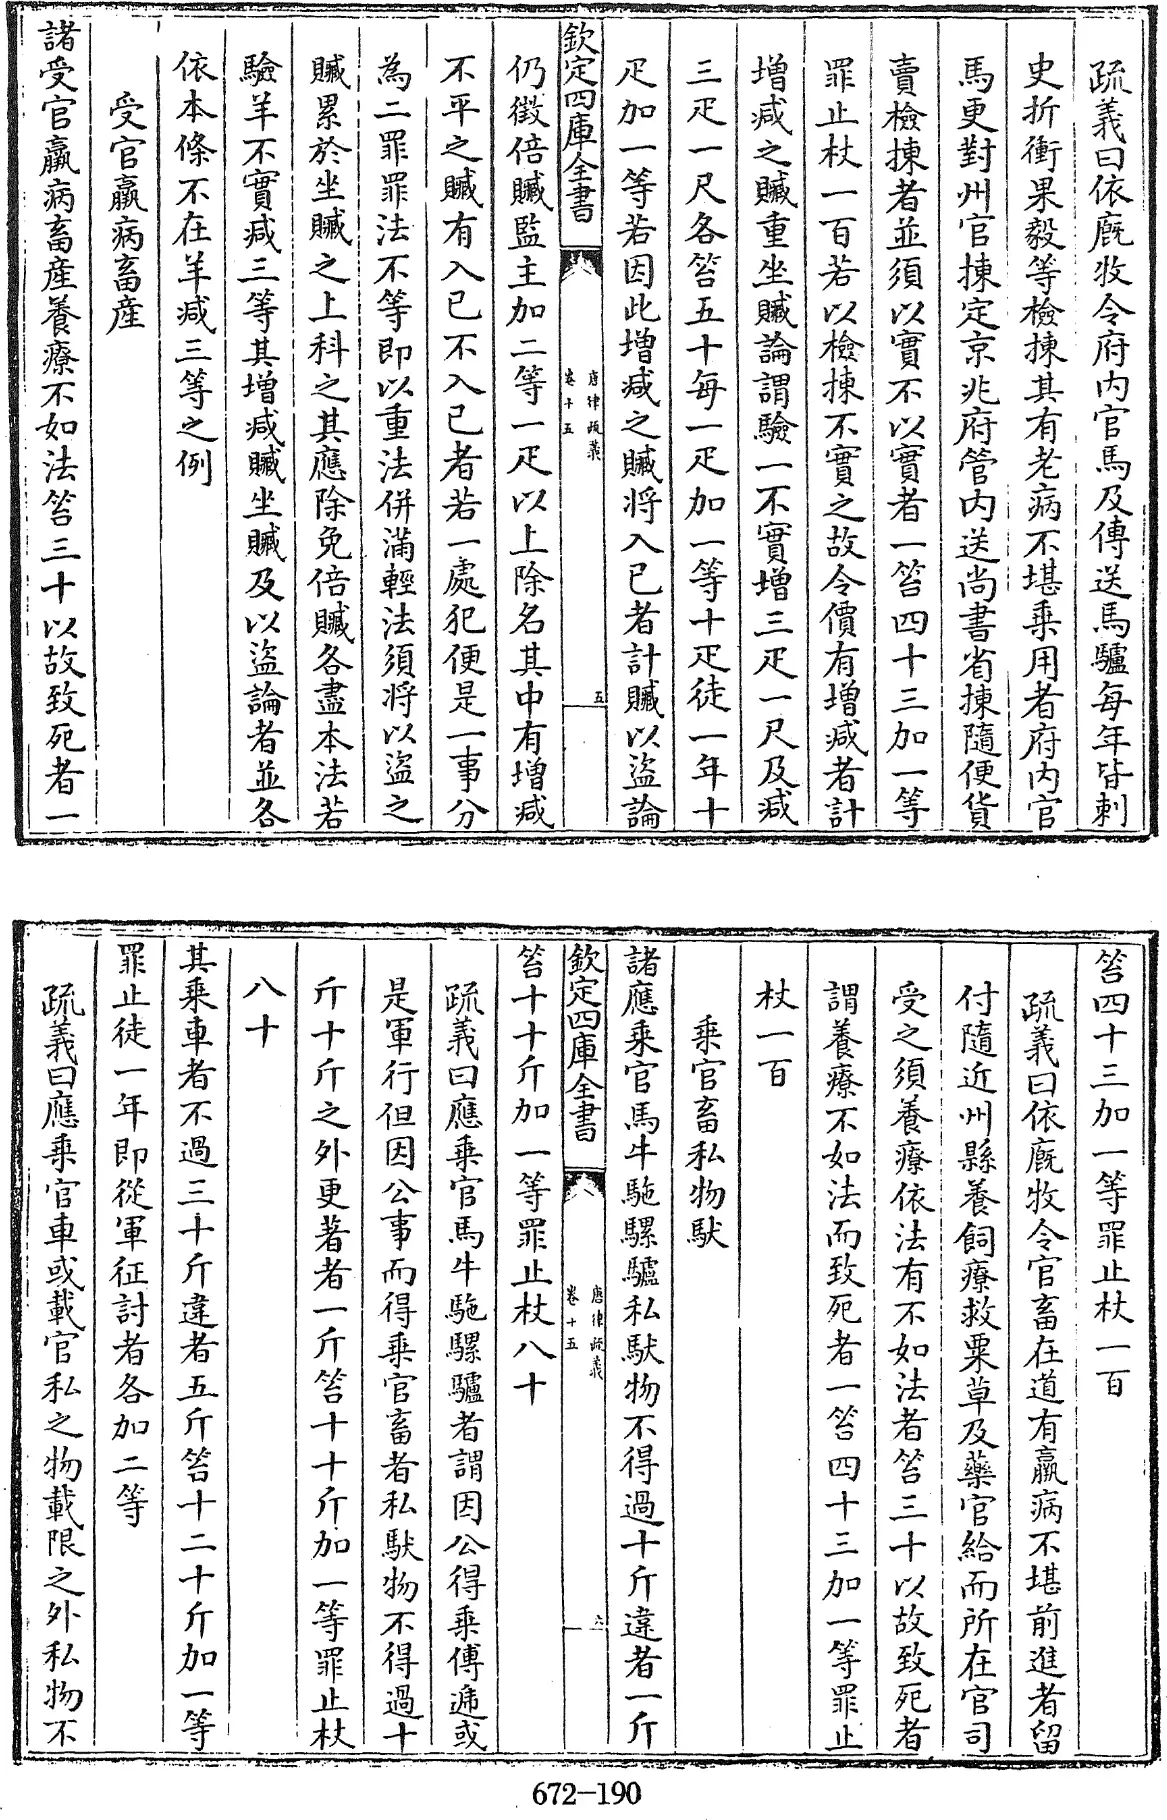 疏義曰依廐牧令府内官馬及傳送馬驢每年皆刺
史折衝果毅等檢揀其有老病不堪乗用者府内官
馬更對州官揀定京兆府管内送尚書省揀隨便貨
賣檢揀者並須以實不以實者一笞四十三加一等
罪止杖一百若以檢揀不實之故令價有增减者計
增减之贓重坐贓論謂驗一不實增三疋一尺及减
三疋一尺各笞五十每一疋加一等十疋徒一年十
疋加一等若因此增减之贓將入已者計贓以盗論
欽定四庫全書
唐律疏義
卷十五
五
仍徵倍贓監主加二等一疋以上除名其中有增减
不平之贓有入已不入已者若一處犯便是一事分
為二罪罪法不等即以重法併滿輕法須將以盗之
贓累於坐贓之上科之其應除免倍贓各盡本法若
驗羊不實减三等其增减贓坐贓及以盗論者並各
依本條不在羊减三等之例
受官羸病畜産
諸受官羸病畜産養療不如法笞三十以故致死者一
笞四十三加一等罪止杖一百
疏義曰依廐牧令官畜在道有羸病不堪前進者留
付隨近州縣養飼療救粟草及藥官給而所在官司
受之須養療依法有不如法者笞三十以故致死者
謂養療不如法而致死者一笞四十三加一等罪止
杖一百
乗官畜私物馱
諸應乗官馬牛駞騾驢私馱物不得過十斤違者一斤
欽定四庫全書
唐律疏義
卷十五
六
笞十十斤加一等罪止杖八十
疏義曰應乗官馬牛駞騾驢者謂因公得乗傳遞或
是軍行但因公事而得乗官畜者私馱物不得過十
斤十斤之外更著者一斤笞十十斤加一等罪止杖
八十
其乗車者不過三十斤違者五斤笞十二十斤加一等
罪止徒一年即從軍征討者各加二等
疏義曰應乗官車或載官私之物載限之外私物不
672-190